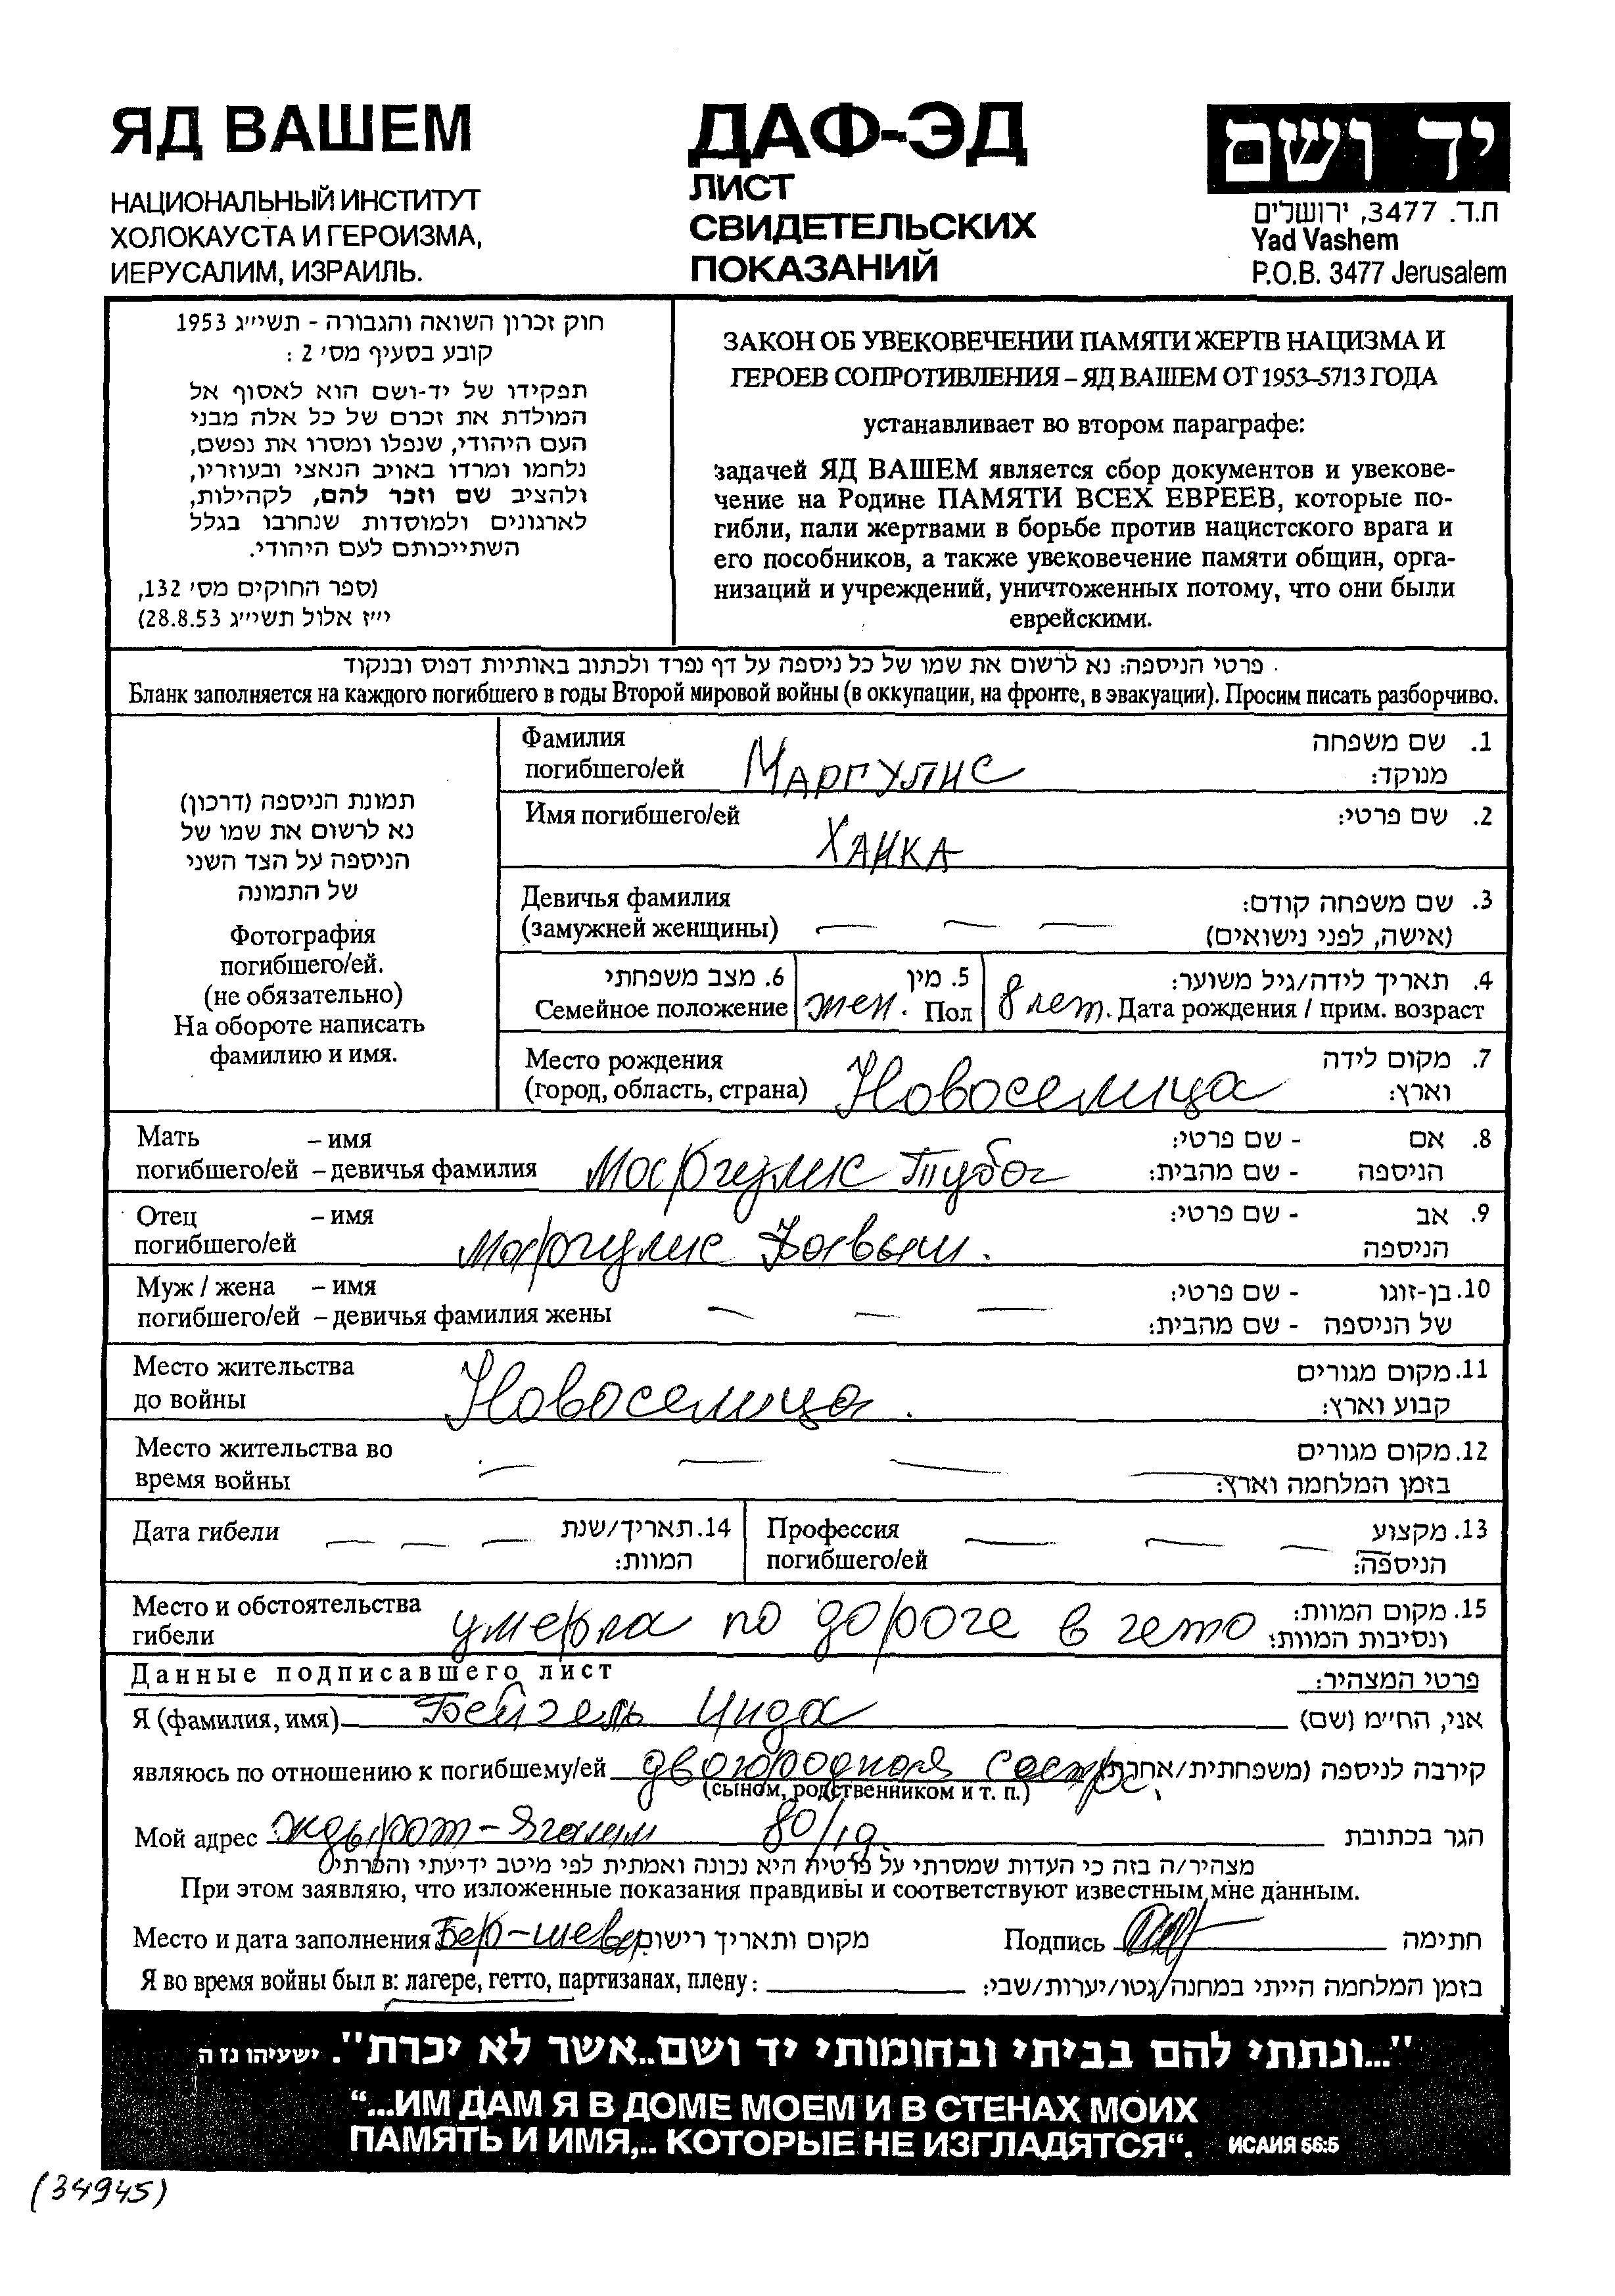 ЯД ВАШЕМ
НАЦИОНАЛЬНЫЙ ИНСТИТУТ
ХОЛОКАУСТА И ГЕРОИЗМА,
ИЕРУСАЛИМ, ИЗРАИЛЬ.
ДАФ-ЭД
ЛИСТ
СВИДЕТЕЛЬСКИХ
ПОКАЗАНИЙ
יד ושם
ת.ד. 3477, ירושלים
Yad Vashem
P.O.B. 3477 Jerusalem
חוק זכרון השואה והגבורה - תשי״ג 1953
קובע בסעיף מס׳ 2 :
תפקידו של יד-ושם הוא לאסוף אל
המולדת את זכרם של כל אלה מבני
העם היהודי, שנפלו ומסרו את נפשם,
נלחמו ומרדו באויב הנאצי ובעוזריו,
ולהציב שם וזכר להם, לקהילות,
לארגונים ולמוסדות שנחרבו בגלל
השתייכותם לעם היהודי.
(ספר החוקים מס׳ 132,
י״ז אלול תשי״ג 28.8.53)
ЗАКОН ОБ УВЕКОВЕЧЕНИИ ПАМЯТИ ЖЕРТВ НАЦИЗМА И
ГЕРОЕВ СОПРОТИВЛЕНИЯ – ЯД ВАШЕМ ОТ 1953–5713 ГОДА
устанавливает во втором параграфе:
задачей ЯД ВАШЕМ является сбор документов и увекове-
чение на Родине ПАМЯТИ ВСЕХ ЕВРЕЕВ, которые по-
гибли, пали жертвами в борьбе против нацистского врага и
его пособников, а также увековечение памяти общин, орга-
низаций и учреждений, уничтоженных потому, что они были
еврейскими.
פרטי הניספה: נא לרשום את שמו של כל ניספה על דף נפרד ולכתוב באותיות דפוס ובנקוד
Бланк заполняется на каждого погибшего в годы Второй мировой войны (в оккупации, на фронте, в эвакуации). Просим писать разборчиво.
תמונת הניספה (דרכון)
נא לרשום את שמו של
הניספה על הצד השני
של התמונה
Фотография
погибшего/ей.
(не обязательно)
На обороте написать
фамилию и имя.
Фамилия 1. שם משפחה
погибшего/ей Маргулис מנוקד:
Имя погибшего/ей 2. שם פרטי:
Ханка
Девичья фамилия 3. שם משפחה קודם:
(замужней женщины) — — — (אישה, לפני נישואים)
6. מצב משפחתי 5. מין 4. תאריך לידה/גיל משוער:
Семейное положение жен. Пол 8 лет. Дата рождения / прим. возраст
Место рождения 7. מקום לידה
(город, область, страна) Новоселица וארץ:
Мать – имя 8. אם - שם פרטי:
погибшего/ей – девичья фамилия Маргулис Туба הניספה - שם מהבית:
Отец – имя 9. אב - שם פרטי:
погибшего/ей Маргулис הניספה
Муж / жена – имя 10. בן-זוגו - שם פרטי:
погибшего/ей – девичья фамилия жены — — — של הניספה - שם מהבית:
Место жительства 11. מקום מגורים
до войны Новоселица. קבוע וארץ:
Место жительства во 12. מקום מגורים
время войны — — — — בזמן המלחמה וארץ:
Дата гибели — — — 14. תאריך/שנת
המוות:
Профессия — — — 13. מקצוע
погибшего/ей הניספה:
Место и обстоятельства 15. מקום המוות:
гибели умерла по дороге в гето ונסיבות המוות:
Данные подписавшего лист פרטי המצהיר:
Я (фамилия, имя) Бейгель Инда אני, הח״מ (שם)
являюсь по отношению к погибшему/ей двоюродная сестра. קירבה לניספה (משפחתית/אחרת)
(сыном, родственником и т. п.)
Мой адрес 80/19. הגר בכתובת
מצהיר/ה בזה כי העדות שמסרתי על פרטיה היא נכונה ואמתית לפי מיטב ידיעתי והכרתי
При этом заявляю, что изложенные показания правдивы и соответствуют известным мне данным.
Место и дата заполнения Бер-шева מקום ותאריך רישום Подпись חתימה
Я во время войны был в: лагере, гетто, партизанах, плену: בזמן המלחמה הייתי במחנה/גטו/יערות/שבי:
"...ונתתי להם בביתי ובחומותי יד ושם..אשר לא יכרת". ישעיהו נז ה
“...ИМ ДАМ Я В ДОМЕ МОЕМ И В СТЕНАХ МОИХ
ПАМЯТЬ И ИМЯ,.. КОТОРЫЕ НЕ ИЗГЛАДЯТСЯ“. ИСАИЯ 56:5
(34945)